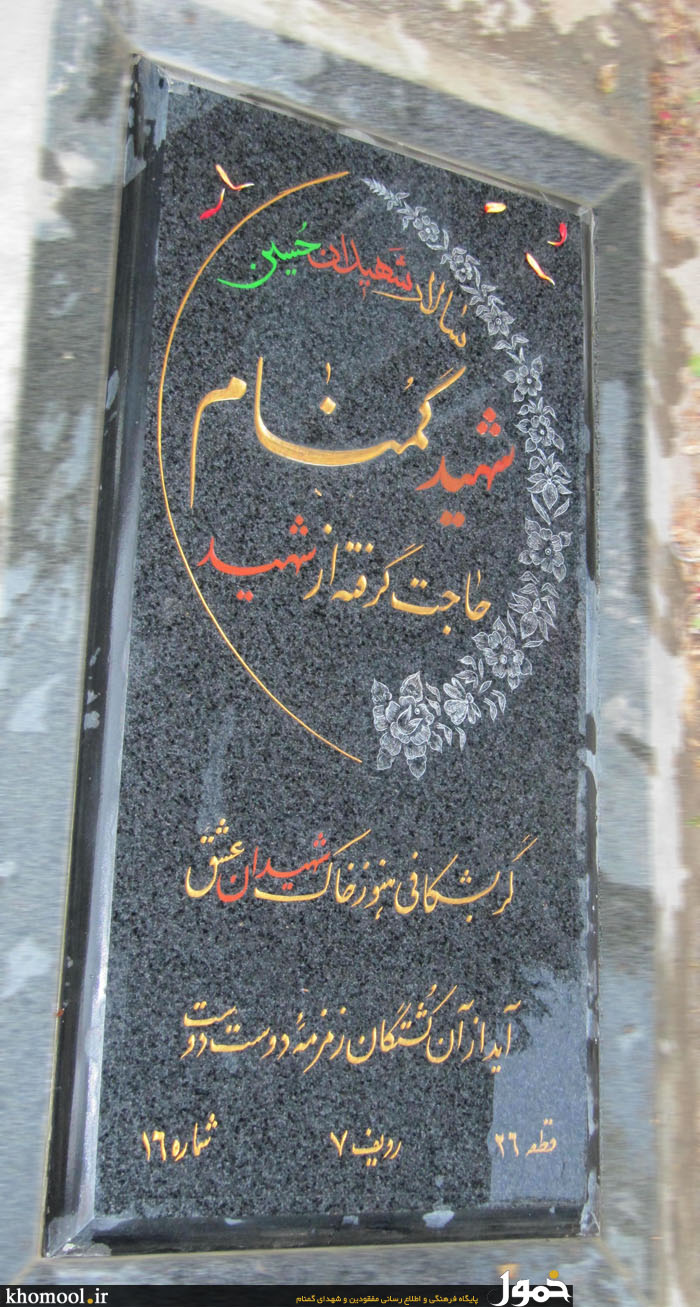 سالار شهیدان حسین
شهید گمنام
حاجت گرفته از شهید
گر بشکافی هنوز خاک شهیدان عشق
آید از آن کشتگان زمزمهٔ دوست دوست
قطعه ۲۶ ردیف ۷ شماره ۱۶
khomool.ir پایگاه فرهنگی و اطلاع رسانی مفقودین و شهدای گمنام خمول